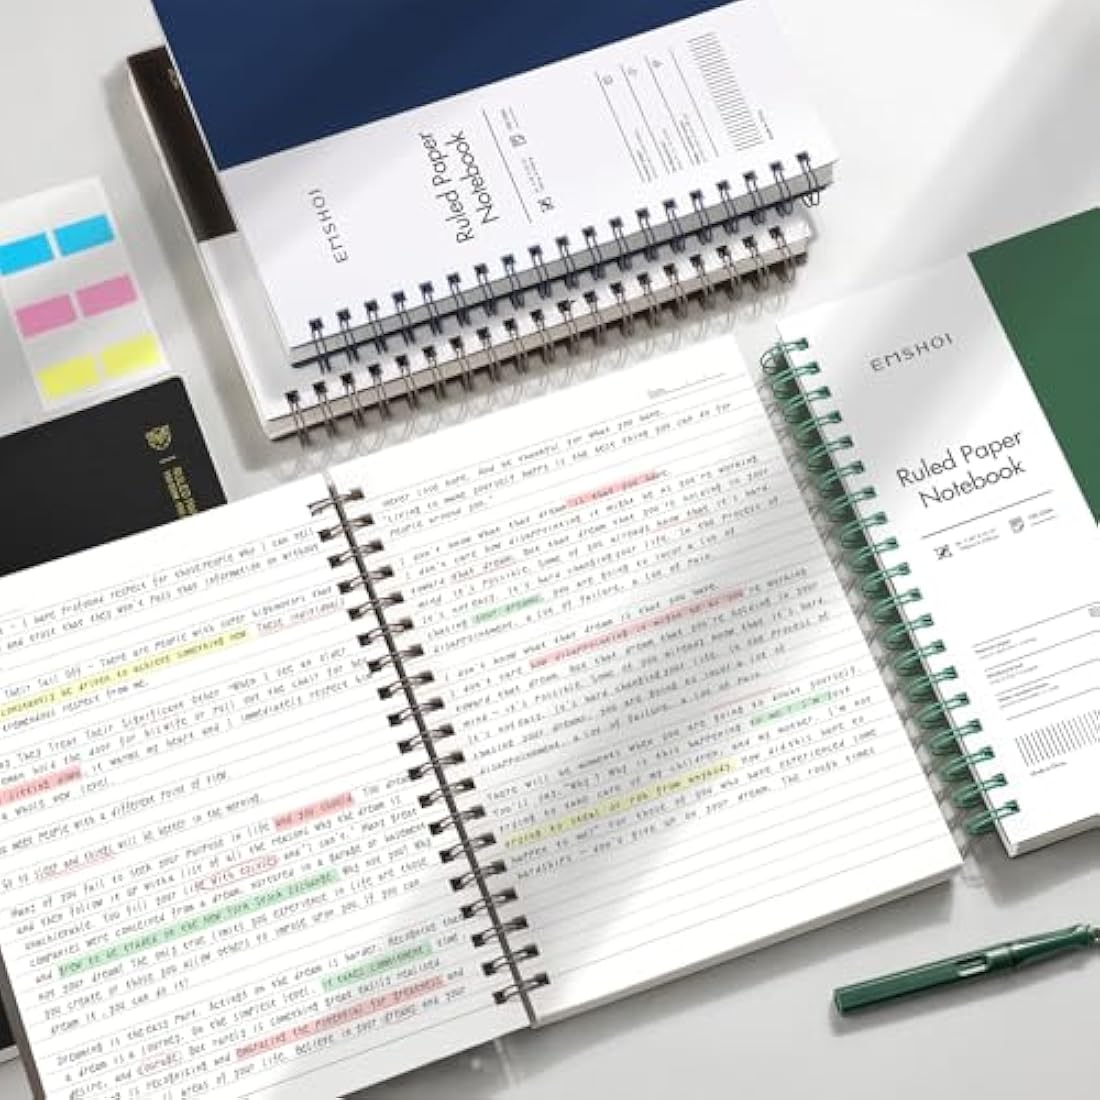 EMSHOI
Ruled Paper
Notebook
EMSHOI
Ruled Paper
Notebook
RULED
Date
I have profound respect for those people who I can tell
and trust that they won't pass that information on without
Their Tall Guy - There are people with super highpowers that
constantly be driven to achieve something new These individuals
tremendous respect from me.
They Treat Their Significant Other - When I see an older
hold the door for his wife or pull out the chair for her
it warms my heart and I immediately respect him
a whole new level.
meet people with a different point of view.
Go to sleep and things will be better in the morning
Many of you fail to seek your purpose in life and you should You dream
and then follow it up with a list of all the reasons why the dream is
unachievable. You fill your life with excuses and "I can't". Many great
companies were conceived from a dream, nurtured in a garage or basement
and grew to be traded on the New York Stock Exchange. Why not you? Why
not your dream? The only true limits you experience in life are those
you create or those you allow others to impose upon you if you can
dream it, you can do it!
Dreaming is the easy part. Acting on the dream is harder. Recognize that
a dream is a journey. On the simplest level, it takes commitment, time
desire, and courage. But rarely is something great easily realized
is recognizing and embracing the potential for greatness and
all areas of your life. Believe in your dreams and your
never lose hope. And be thankful for what you have.
"Trying to make yourself happy is the best thing you can do for
people around you."
I don't know what that dream is that you have.
I don't care how disappointing it might be as you're working
toward that dream. But that dream that you're holding in your
mind, it's possible. Some of you already know that it's hard.
it's not easy. It's hard changing your life. In the process of
chasing your dreams, you are going to incur a lot of
disappointment, a lot of failure, a lot of pain.
I don't know what that dream is that you have.
I don't care how disappointing it might be as you're working
toward that dream. And that dream that you're holding in your
mind - it's possible. Some of you already know that it's hard.
It's not easy. It's hard changing your life. In the process of
chasing your dreams, you are going to incur a lot of
disappointment, a lot of failure, a lot of pain.
There will be moments when you are going to doubt yourself.
You'll say, "Why? Why is this happening to me? I'm just
trying to take care of my children, and my mother. I'm not
trying to steal or rob from anybody. How did this have to
happen to me?" For those of you who have experienced some
hardships - don't give up on your dream. The rough times